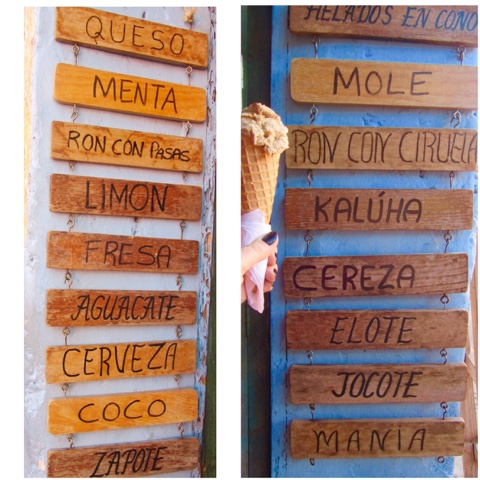 QUESO
MENTA
RON CON PASAS
LIMON
FRESA
AGUACATE
CERVEZA
COCO
ZAPOTE
HELADOS EN CONO
MOLE
RON CON CIRUELA
KALÚHA
CEREZA
ELOTE
JOCOTE
MANIA